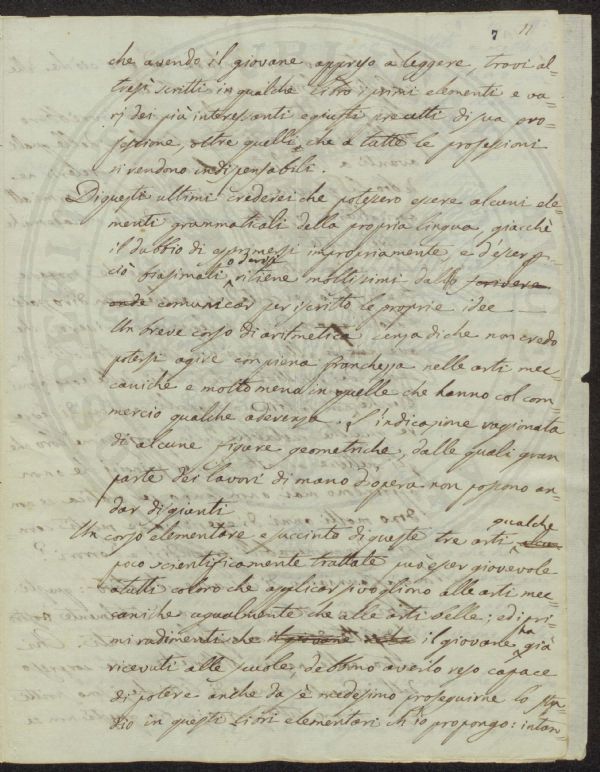 7 11
che avendo il giovane appreso a leggere, trovi al-
tresì scritti in qualche libro i primi elementi e va-
rj dei più interessanti e giusti precetti di sua pro-
fessione, oltre quelli, che a tutte le professioni
si rendono indispensabili.
Di questi ultimi crederei che potessero essere alcuni ele-
menti grammaticali della propria lingua, giacchè
il dubbio di esprimersi impropriamente, e d'esser p-
ciò biasimati o derisi ritiene moltissimi dallo scrivere
onde comunicar per iscritto le proprie idee
Un breve corso di aritmetica senza di che non credo
potersi agire con piena franchezza nelle arti mec-
caniche e molto meno in quelle che hanno col com-
mercio qualche aderenza; L'indicazione ragionata
di alcune figure geometriche, dalle quali gran
parte dei lavori di mano d'opera non possono an-
dar digiunti
Un corso elementare e succinto di queste tre arti qualche
poco scientificamente trattate può esser giovevole
a tutti coloro che applicar si vogliono alle arti mec-
caniche egualmente che alle arti belle; ed i pri-
mi rudimenti che il giovane il giovane ha già
ricevuti alle scuole, debbino averlo reso capace
di potere anche da sè medesimo proseguirne lo stu-
dio in questi libri elementari ch'io propongo: intan-